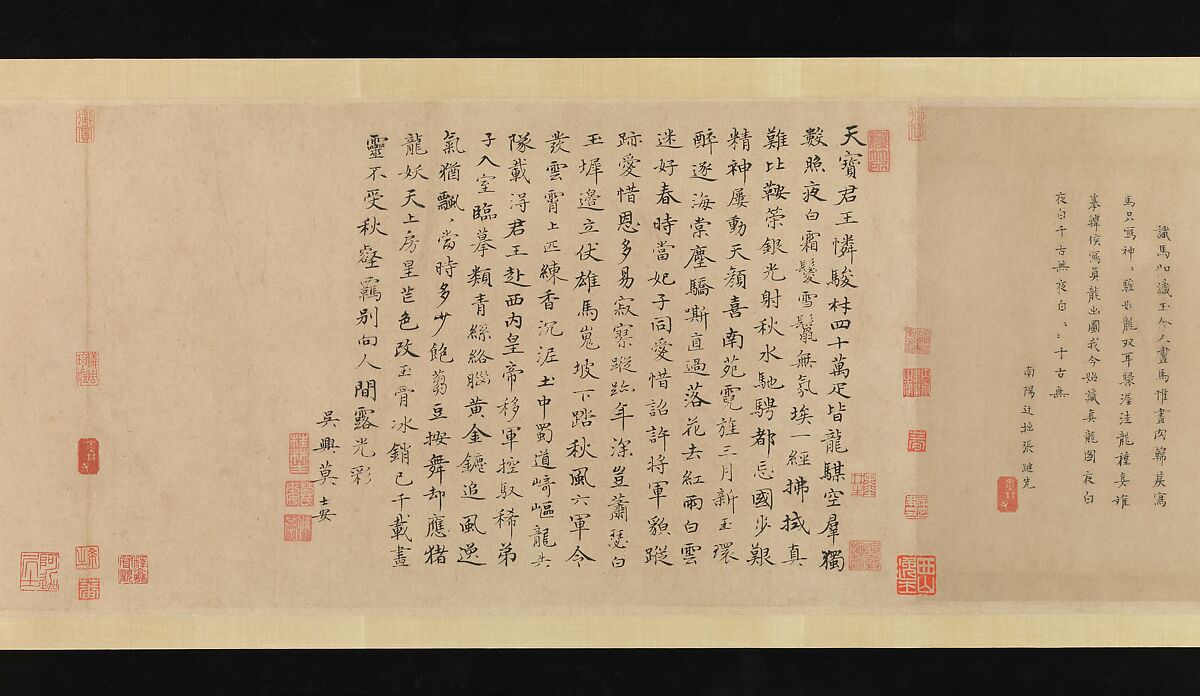 識馬如識玉今人畫馬惟畫肉歸矣寫
馬只寫神〻駿如龍双耳驟渥洼龍種真誰
摹韓侯寫真龍出圖我今始識真龍圖夜白
夜白千古無夜白〻〻千古無
南陽迂拙張繼先
天寶君王憐駿材四十萬疋皆龍騏空羣獨
數照夜白霜鬉雪鬛無氛埃一經拂拭真
難比鞍榮銀光射秋水馳騁都忘國步艱
精神屢動天顏喜南苑霓旌三月新玉環
醉逐海棠塵驕嘶直過落花去紅雨白雲
迷好春時當妃子同愛惜詔許將軍貌蹤
跡愛惜恩多易寂寞蹤跡年深豈蕭瑟白
玉墀邊立仗雄馬嵬坡下踏秋風六軍令
發雲霄上匹練香沉泥土中蜀道崎嶇龍共
隊載得君王赴西内皇帝移軍控馭稀弟
子入室臨摹類青絲絡腦黄金鑣追風逸
氣猶飄〻當時多少飽芻豆按舞却應猪
龍妖天上房星芒色改玉骨冰銷已千載畫
靈不受秋壑羈别向人間露光彩
吳興莫士安